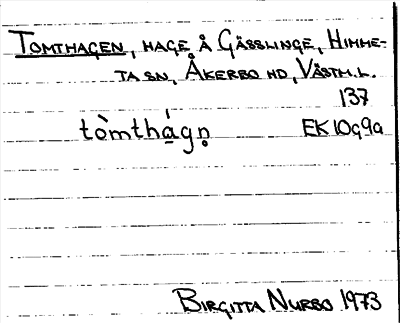 TOMTHAGEN, HAGE Å GÄSSLINGE, HIMME-
TA SN, ÅKERBO HD, VÄSTM.L.
137
tòmthá̱gn̥ EK10g9a
BIRGITTA NURBO 1973